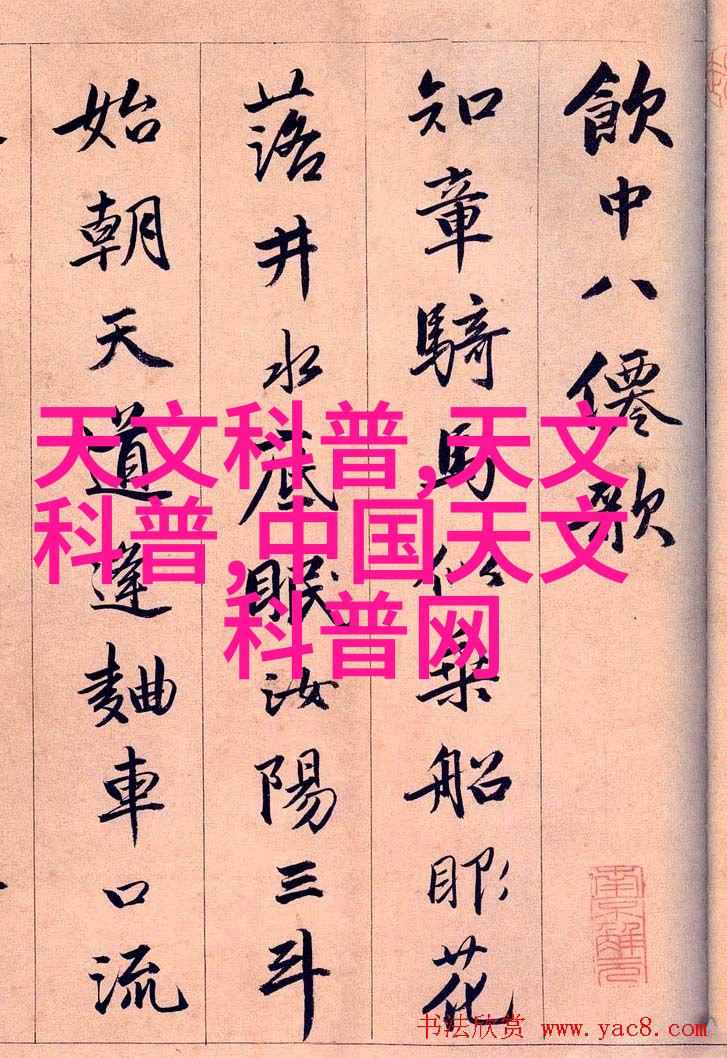 飲中八僊歌
知章騎馬似乘船眼花
落井水底眠汝陽三斗
始朝天道逢麯車口流
天文科普,天文
科普,中国天文
科普网
南京解元
书法欣赏 www.yac8.com